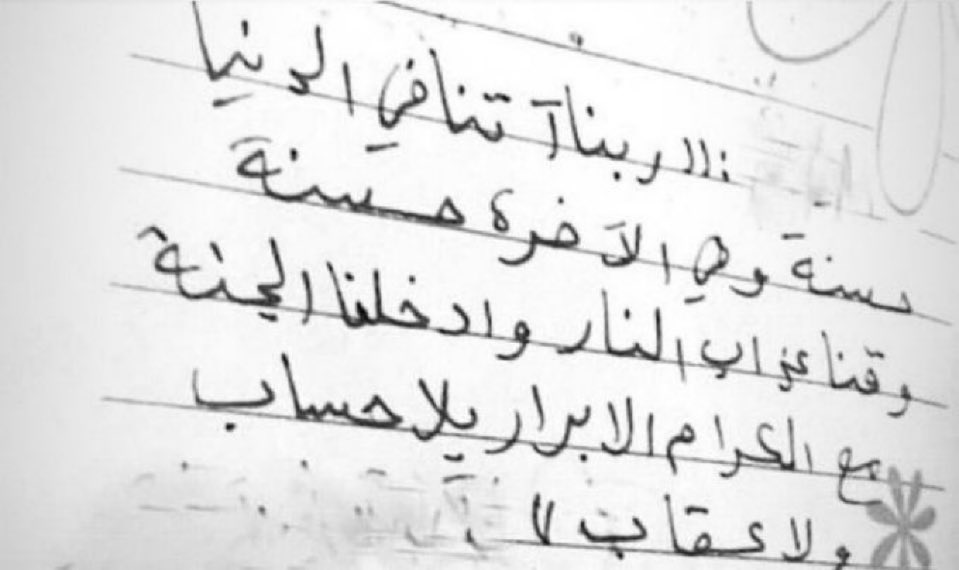 :" ربنا آتنا في الدنيا
حسنة وفي الآخرة حسنة
وقنا عذاب النار وادخلنا الجنة
مع الكرام الابرار بلا حساب
ولا عقاب "